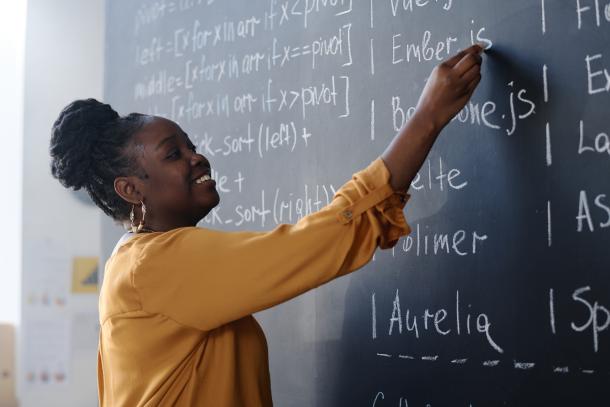 pivot=
left=[x for x in arr if x<pivot]
middle=[x for x in arr if x==pivot]
[x for x in arr if x>pivot]
ck_sort(left)+
e+
ck_sort(right))
Vue.js
| Ember.js
| Bone.js
elte
olimer
| Aurelia
| Fl
| Ex
| La
| AS
| Sp